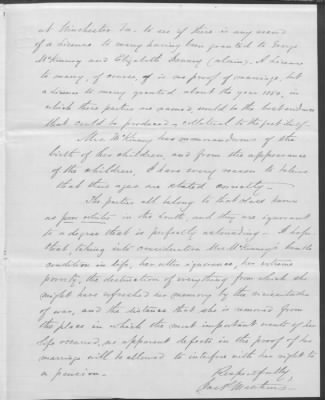 at Winchester Va. to see if there is any record
of a license to marry having been granted to George
McKinney and Elizabeth (claim). A license
to marry, of course, is no proof of marriage, but
a license to marry granted about the year 1850, in
which these parties are named, would be the best evidence
that could be produced, collateral to the fact itself.
Mrs. McKinney has memorandums of the
birth of her children, and from the appearance
of the children, I have every reason to believe
that their ages are stated correctly.
The parties all belong to that class known
as poor whites in the South, and they are ignorant
to a degree that is perfectly astounding. I hope
that taking into consideration Mrs. McKinney's humble
condition in life, her utter ignorance, her extreme
poverty, the destruction of everything from which she
might have refreshed her memory by the vicissitudes
of war, and the distance that she is removed from
the place in which the most important events of her
life occurred, no apparent defects in the proof of her
marriage will be allowed to interfere with her right to
a pension.
Respectfully